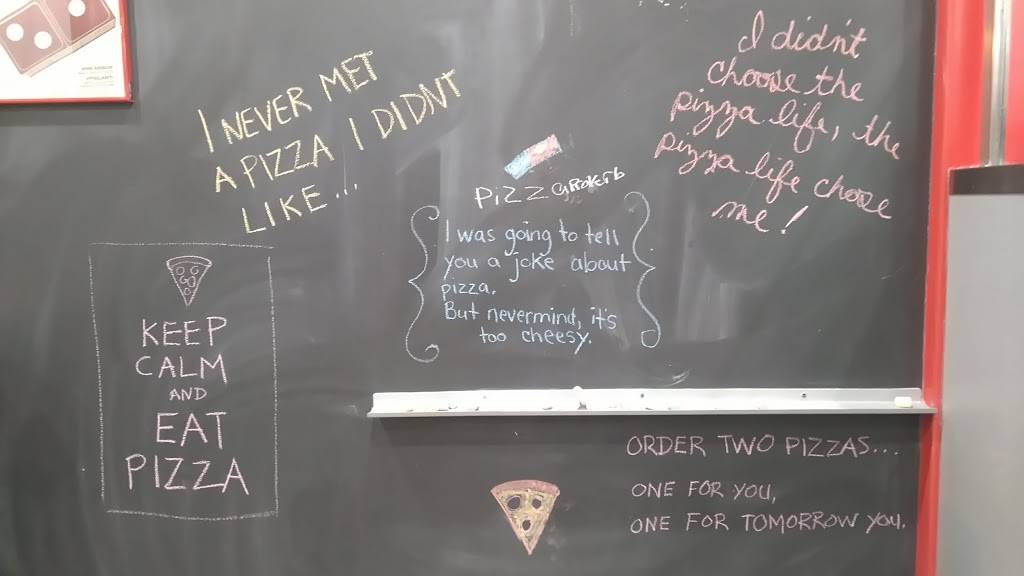 I NEVER MET
A PIZZA I DIDNT
LIKE...
I didn't
choose the
pizza life, the
pizza life choose
me!
PIZZ
I was going to tell
you a joke about
pizza.
But nevermind, it's
too cheesy.
KEEP
CALM
AND
EAT
PIZZA
ORDER TWO PIZZAS...
ONE FOR YOU,
ONE FOR TOMORROW YOU.